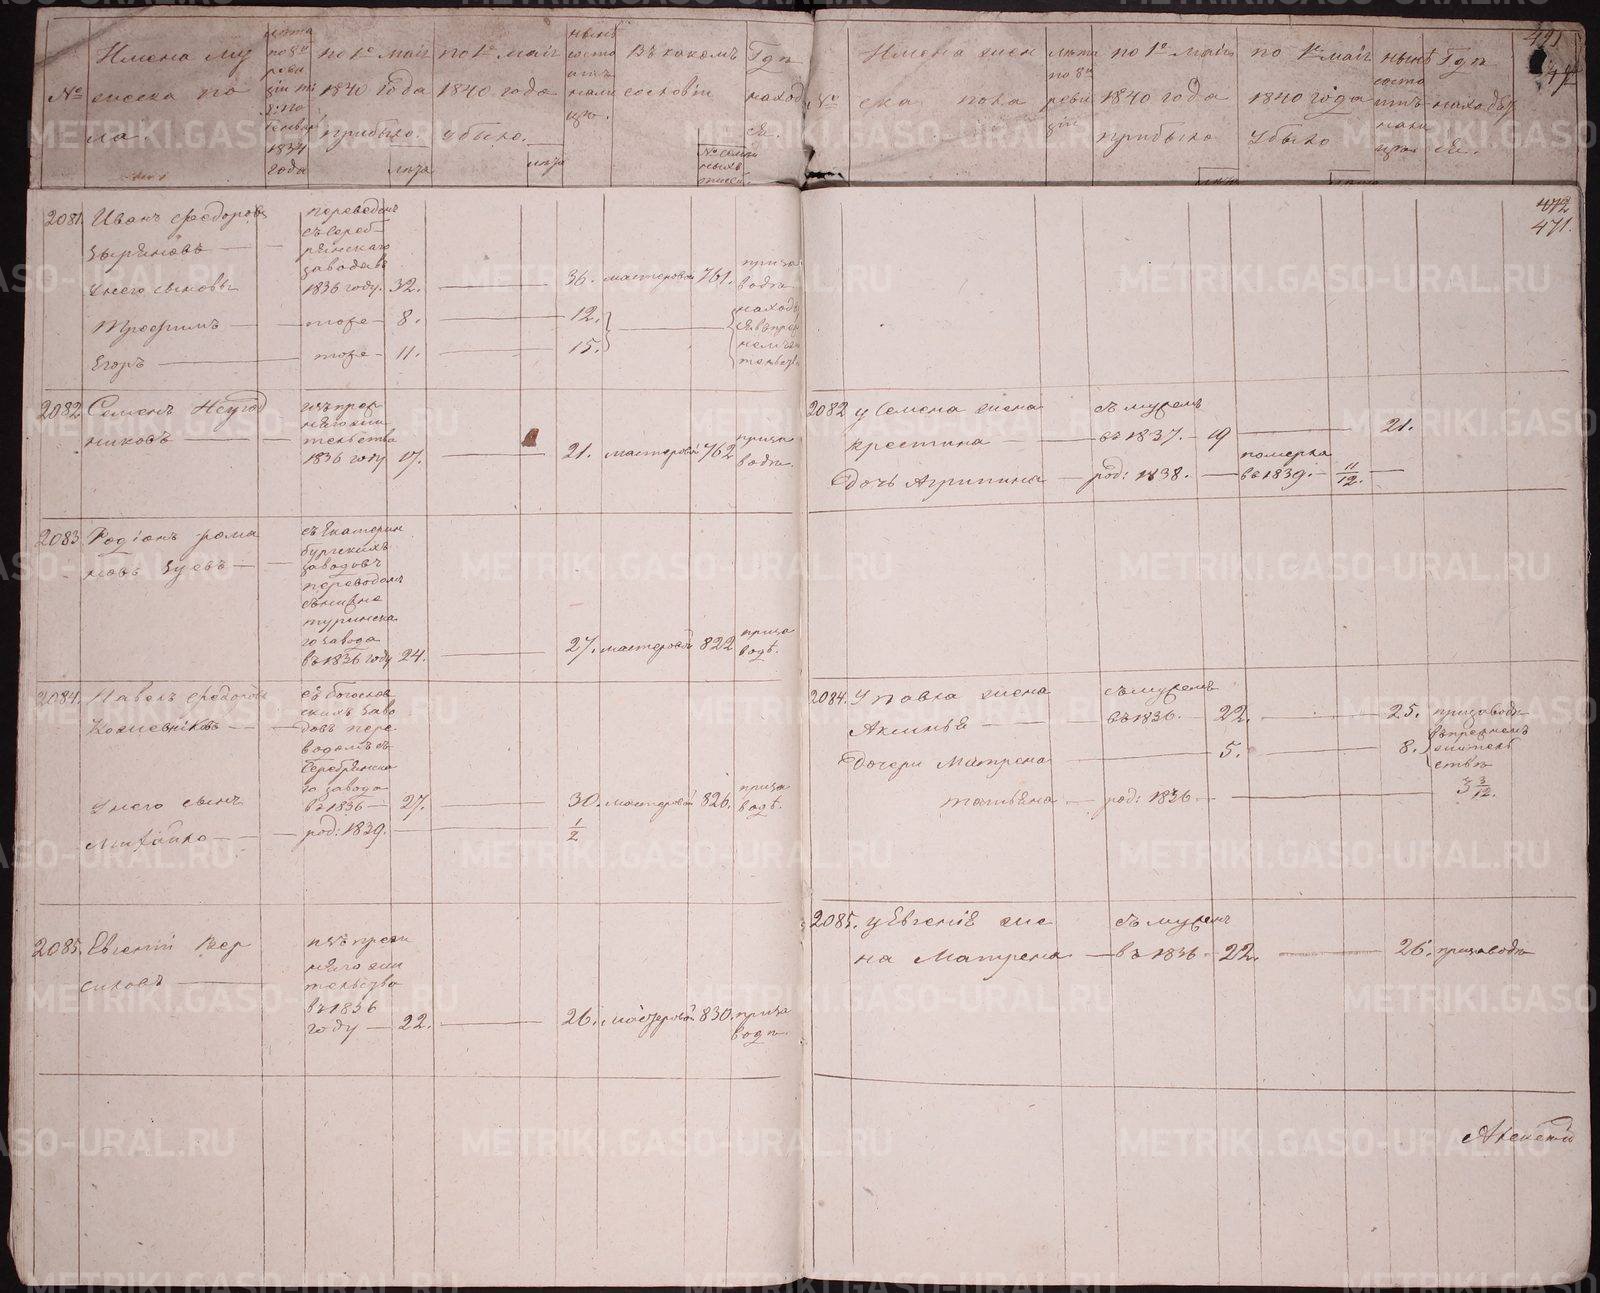 №
Имена му
жеска по
ла.
лѣта
по 8й
реви
зіи
1834
года
по 1е маія
1840 года
прибыло.
лѣта
по 1е маія
1840 года
убыло.
лѣта
нынѣ
состо
итъ
нали
цо.
Въ какомъ
сословіи
№ семей
ныхъ
Гдѣ
наход
ся.
2081.
Иванъ Феодоровъ
Зыряновъ
переведенъ
съ Сереб-
рянскаго
завода въ
1836 году.
32.
36.
мастеровой
761.
при за
водѣ
У него сыновья
Трофимъ
тоже
8.
12.
Егоръ
тоже
11.
15.
2082
Семенъ Негод
никовъ
тельства
1836 году
17.
21.
мастеровой
762
при за
водѣ.
2083
Родіонъ Рома
новъ Зуевъ
съ Екатерин
бургскихъ
заводовъ
переводомъ
съ нижне
туринска
го завода
въ 1836 году
24.
27.
мастеровой
822
при за
водѣ.
2084.
Павелъ Феодоровъ
Кожевниковъ
съ Богослов
скихъ заво
довъ пере
водомъ съ
Серебрянска
го завода
въ 1836
27.
30.
мастеровой
826.
при за
водѣ.
У него сынъ
Михайло
род: 1839.
1/2
2085.
Евгеній Вер
силовъ
изъ преж
няго жи
тельства
въ 1836
году
22.
26.
мастеровой
830.
при за
водѣ.
421
№
Имена жен
ска пола
лѣта
по 8й
реви
зіи
по 1е маія
1840 года
прибыло
лѣта
по 1е маія
1840 года
убыло
лѣта
нынѣ
состо
итъ
нали
цо
Гдѣ
находят
ся.
472
471.
2082
у Семена жена
Крестина
съ мужемъ
въ 1837.
19
21.
Дочь Агрипина
род: 1838.
померла
въ 1839.
11/12.
2084.
У Павла жена
Аксинья
съ мужемъ
въ 1836.
22.
25.
при заводѣ
Дочери Матрена
5.
8.
въ прежнемъ
жительст
ствѣ
Татьяна
род: 1836
3 3/12.
2085.
у Евгенія же
на Матрена
съ мужемъ
въ 1836
22.
26.
при заводѣ